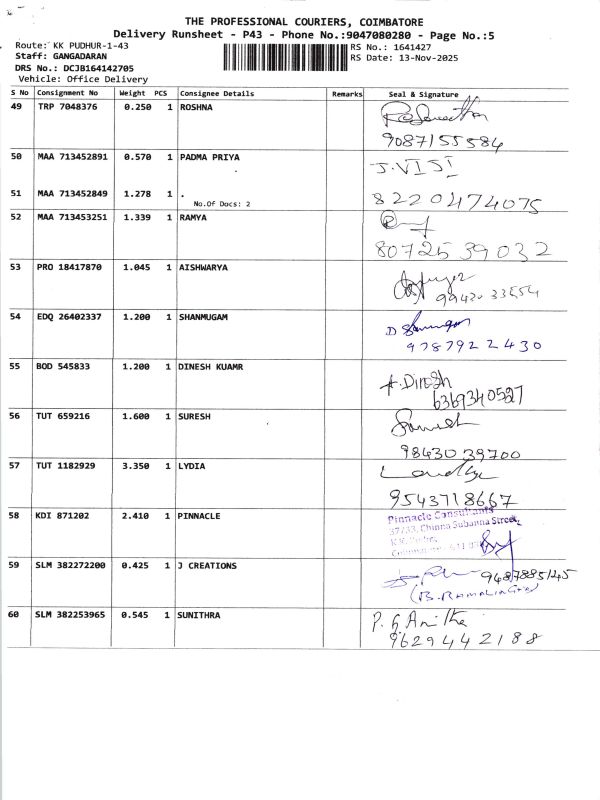 THE PROFESSIONAL COURIERS, COIMBATORE
Delivery Runsheet - P43 - Phone No.:9047080280 - Page No.:5
Route: KK PUDHUR-1-43 RS No.: 1641427
Staff: GANGADARAN RS Date: 13-Nov-2025
DRS No.: DCJB164142705
Vehicle: Office Delivery
S No Consignment No Weight PCS Consignee Details Remarks Seal & Signature
49 TRP 7048376 0.250 1 ROSHNA
9087155584
50 MAA 713452891 0.570 1 PADMA PRIYA J.VISI
51 MAA 713452849 1.278 1 .
No.Of Docs: 2
8220474075
52 MAA 713453251 1.339 1 RAMYA
8072539032
53 PRO 18417870 1.045 1 AISHWARYA
54 EDQ 26402337 1.200 1 SHANMUGAM
9787922430
55 BOD 545833 1.200 1 DINESH KUAMR
A.Dinesh
6369340527
56 TUT 659216 1.600 1 SURESH
9843039700
57 TUT 1182929 3.350 1 LYDIA
9543718667
58 KDI 871202 2.410 1 PINNACLE
Pinnacle Consultants
Chinna Subanna Street,
59 SLM 382272200 0.425 1 J CREATIONS
9487885145
60 SLM 382253965 0.545 1 SUNITHRA
9629442188